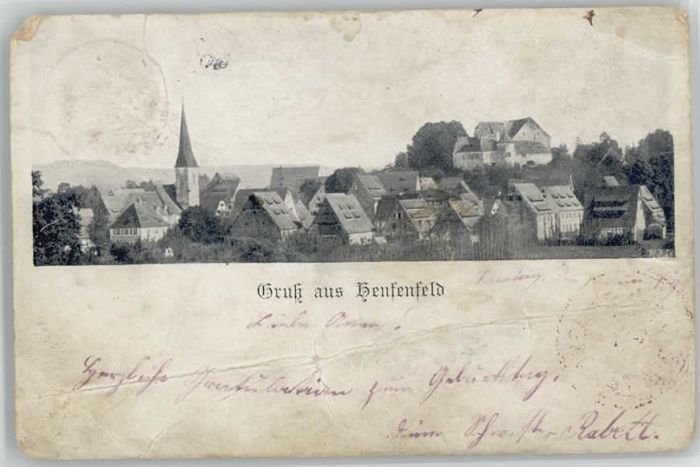 Gruß aus Henfenfeld
Liebe Anna!
Herzliche Gratulation zum Geburtstag.
Deine Schwester Babett.